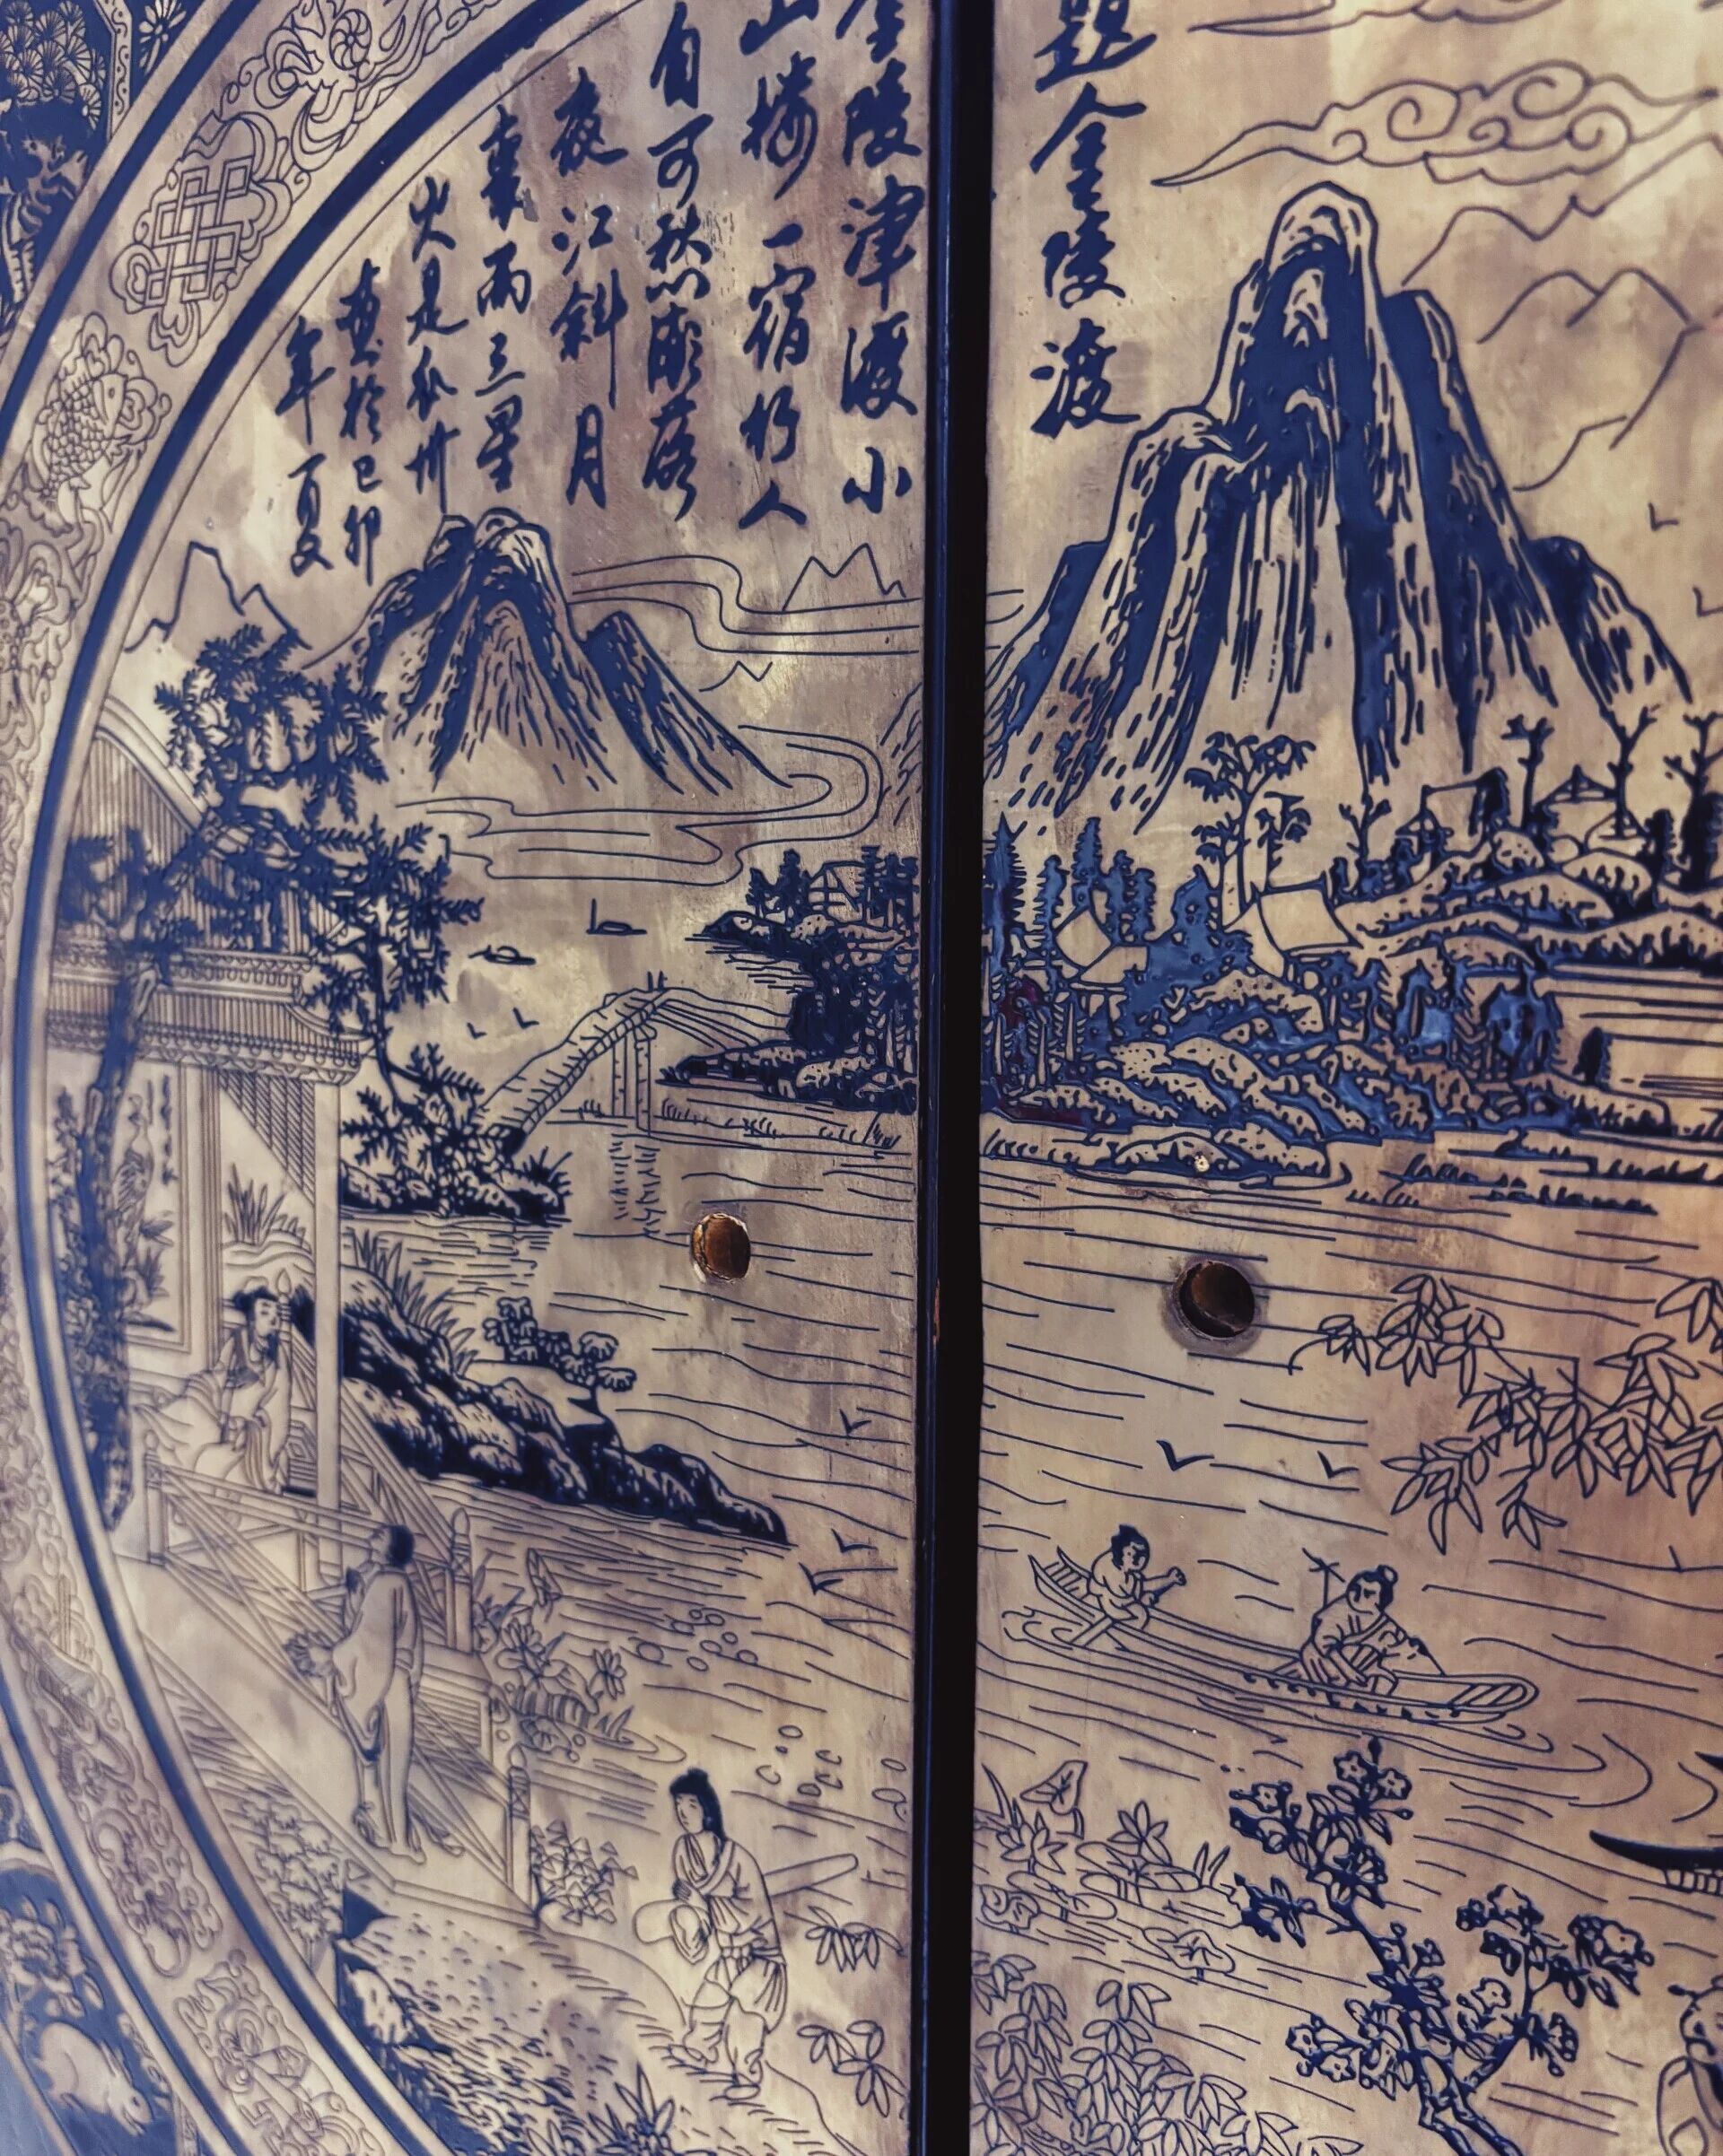 題金陵渡
金陵津渡小
山樓一宿行人
自可愁潮落
夜江斜月
裏兩三星
火是瓜州
畫於己卯
年夏